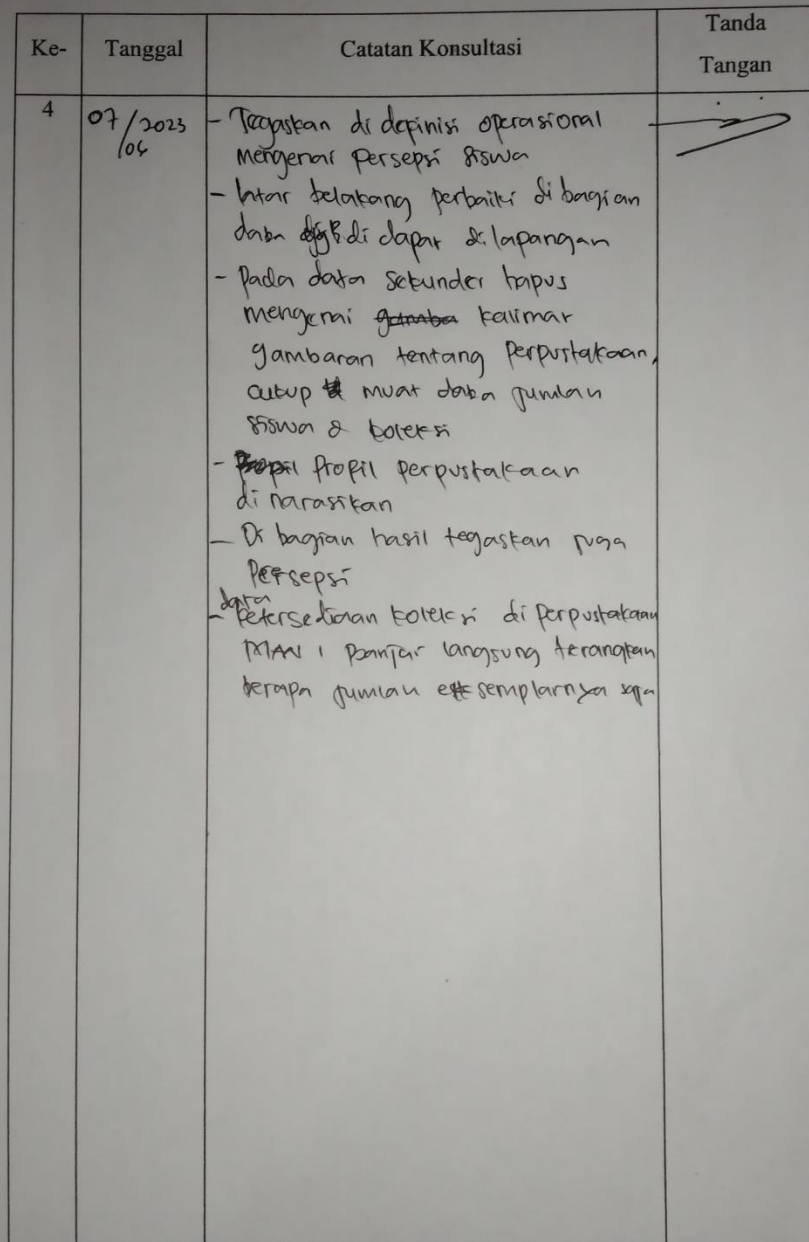 Ke-
Tanggal
Catatan Konsultasi
Tanda
Tangan
4
07/2023
/06
- Tegaskan di depinisi operasional
Mengenai Persepsi siswa
- latar belakang perbaiki di bagian
data di dapat di lapangan
- Pada data sekunder hapus
mengenai kalimat
gambaran tentang Perpustakaan,
cukup muat data jumlah
siswa & koleksi
- Profil perpustakaan
di narasikan
- Di bagian hasil tegaskan juga
Persepsi
data
- ketersediaan koleksi di perpustakaan
MAN 1 Banjar langsung terangkan
berapa jumlah eksemplarnya saja